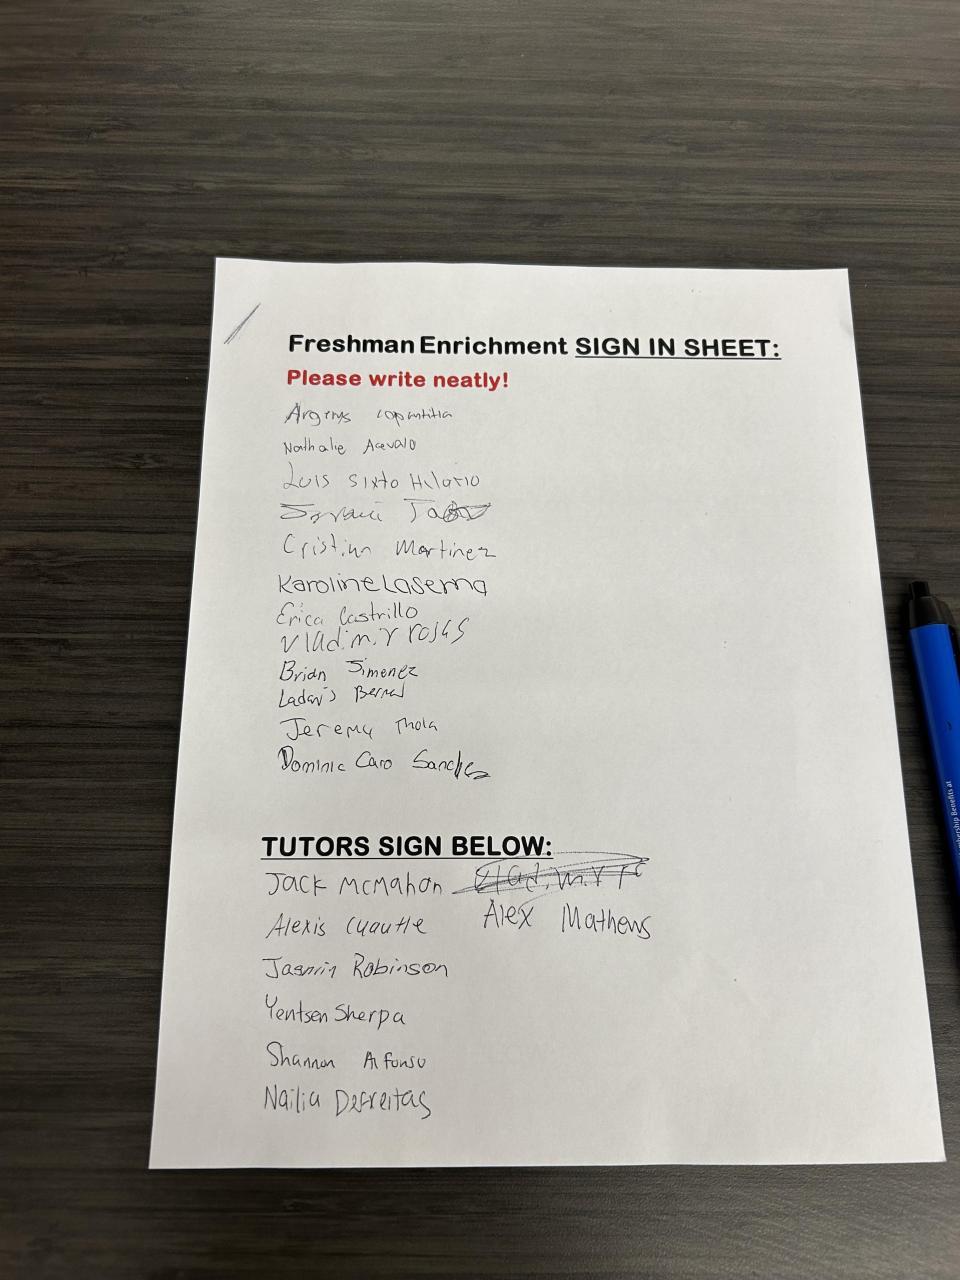 Freshman Enrichment SIGN IN SHEET:
Please write neatly!
Nathalie Acevalo
Luis Sixto Hilario
Cristian Martinez
Karoline Laserna
Erica Castrillo
Vladimir rojas
Brian Jimenez
Bernal
Jeremy Thola
Dominic Caro Sanchez
TUTORS SIGN BELOW:
Jack McMahon
Alex Mathews
Alexis Cuautle
Jasmin Robinson
Yentsen Sherpa
Shannon Alfonso
Nailia DeFreitas
Membership Benefits at